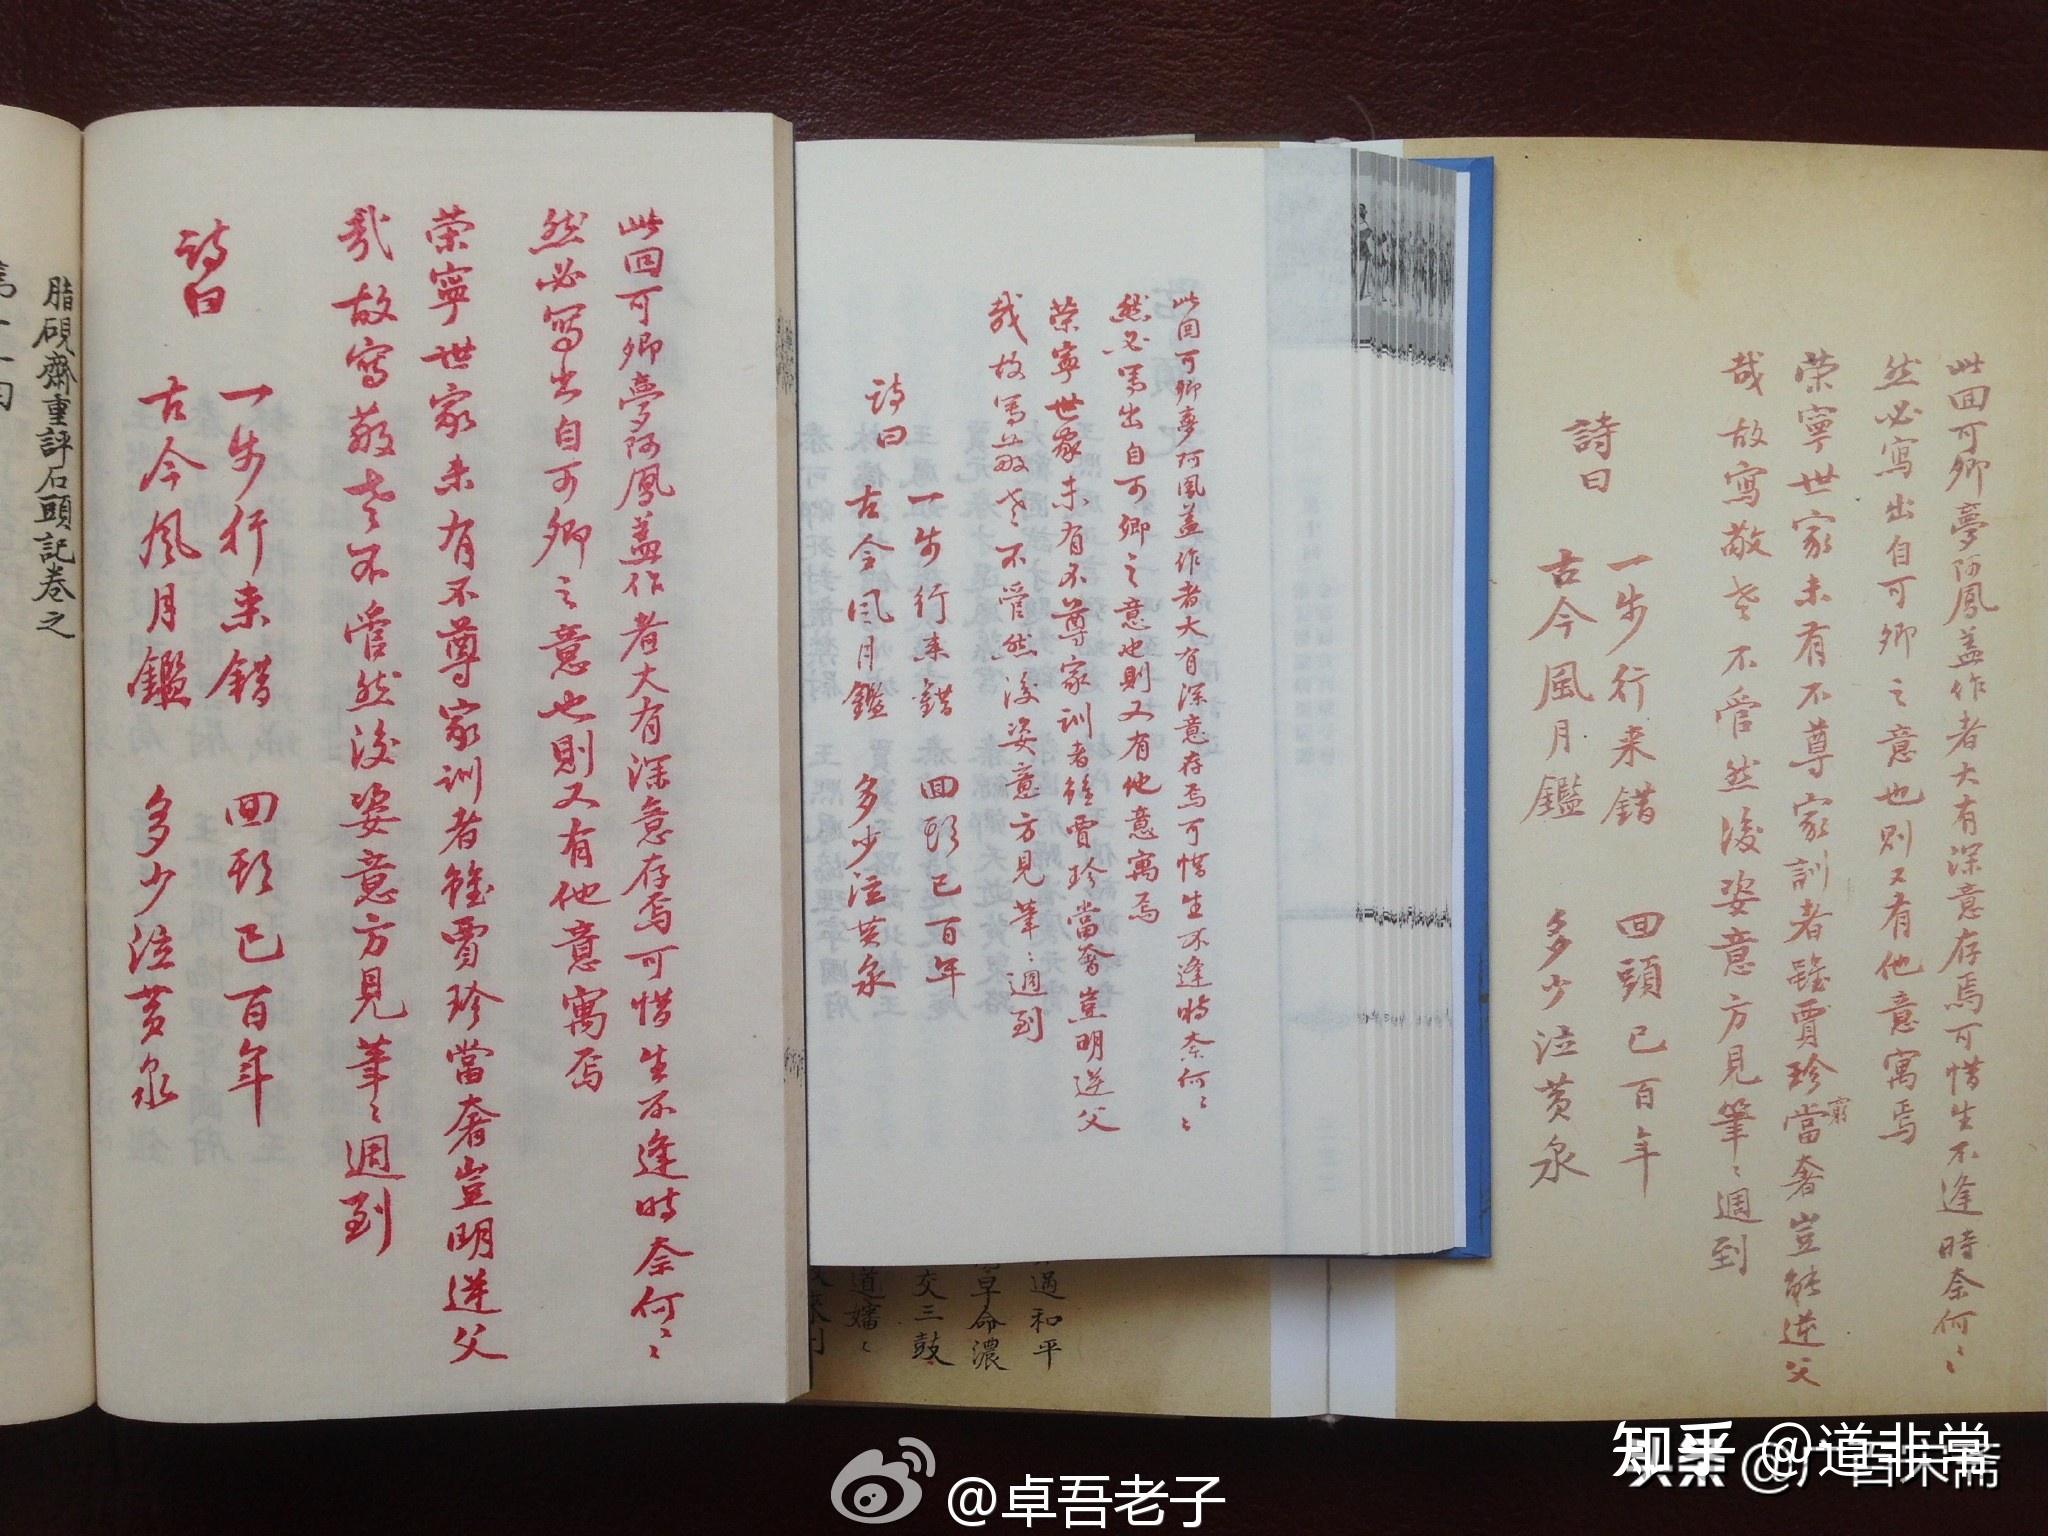 此回可卿夢阿鳳盖作者大有深意存焉可惜生不逢時奈何〻
然必寫出自可卿之意也則又有他意寓焉
荣寧世家未有不尊家訓者雖賈珍當奢豈明逆父
哉故寫敬老不管然後姿意方見筆〻週到
詩曰
一步行来錯 回头已百年
古今風月鑑 多少泣黄泉
脂硯齋重評石頭記卷之
此回可卿夢阿鳳盖作者大有深意存焉可惜生不逢時奈何〻
然必寫出自可卿之意也則又有他意寓焉
荣寧世家未有不尊家訓者雖賈珍當奢豈明逆父
哉故寫敬老不管然後姿意方見筆〻週到
詩曰
一步行来錯 回头已百年
古今風月鑑 多少泣黄泉
此回可卿夢阿鳳盖作者大有深意存焉可惜生不逢時奈何〻
然必寫出自可卿之意也則又有他意寓焉
荣寧世家未有不尊家訓者雖賈珍當奢豈能逆父
哉故寫敬老不管然後姿意方見筆〻週到
詩曰
一步行来錯 回頭已百年
古今風月鑑 多少泣黄泉
過和平
早命濃
交三鼓
道嬸〻
知乎 @道非常
@卓吾老子